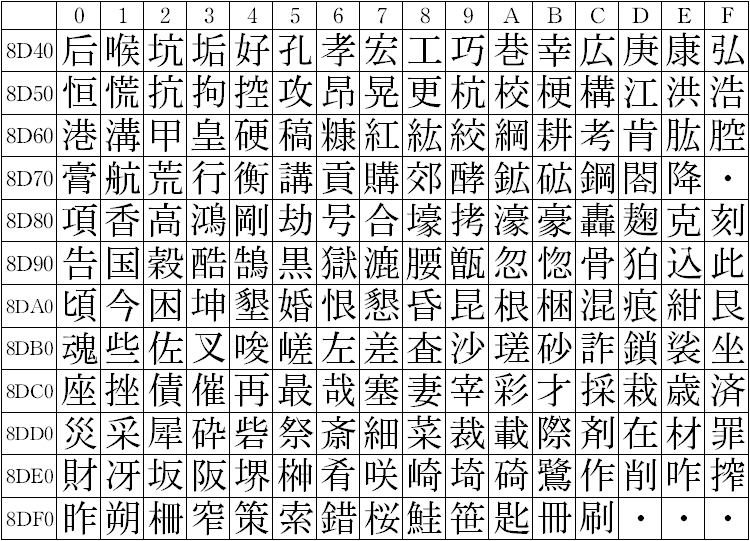 0 1 2 3 4 5 6 7 8 9 A B C D E F
8D40 后 喉 坑 垢 好 孔 孝 宏 工 巧 巷 幸 広 庚 康 弘
8D50 恒 慌 抗 拘 控 攻 昂 晃 更 杭 校 梗 構 江 洪 浩
8D60 港 溝 甲 皇 硬 稿 糠 紅 紘 絞 綱 耕 考 肯 肱 腔
8D70 膏 航 荒 行 衡 講 貢 購 郊 酵 鉱 砿 鋼 閤 降 ・
8D80 項 香 高 鴻 剛 劫 号 合 壕 拷 濠 豪 轟 麹 克 刻
8D90 告 国 穀 酷 鵠 黒 獄 漉 腰 甑 忽 惚 骨 狛 込 此
8DA0 頃 今 困 坤 墾 婚 恨 懇 昏 昆 根 梱 混 痕 紺 艮
8DB0 魂 些 佐 叉 唆 嵯 左 差 査 沙 瑳 砂 詐 鎖 裟 坐
8DC0 座 挫 債 催 再 最 哉 塞 妻 宰 彩 才 採 栽 歳 済
8DD0 災 采 犀 砕 砦 祭 斎 細 菜 裁 載 際 剤 在 材 罪
8DE0 財 冴 坂 阪 堺 榊 肴 咲 崎 埼 碕 鷺 作 削 咋 搾
8DF0 昨 朔 柵 窄 策 索 錯 桜 鮭 笹 匙 冊 刷 ・ ・ ・